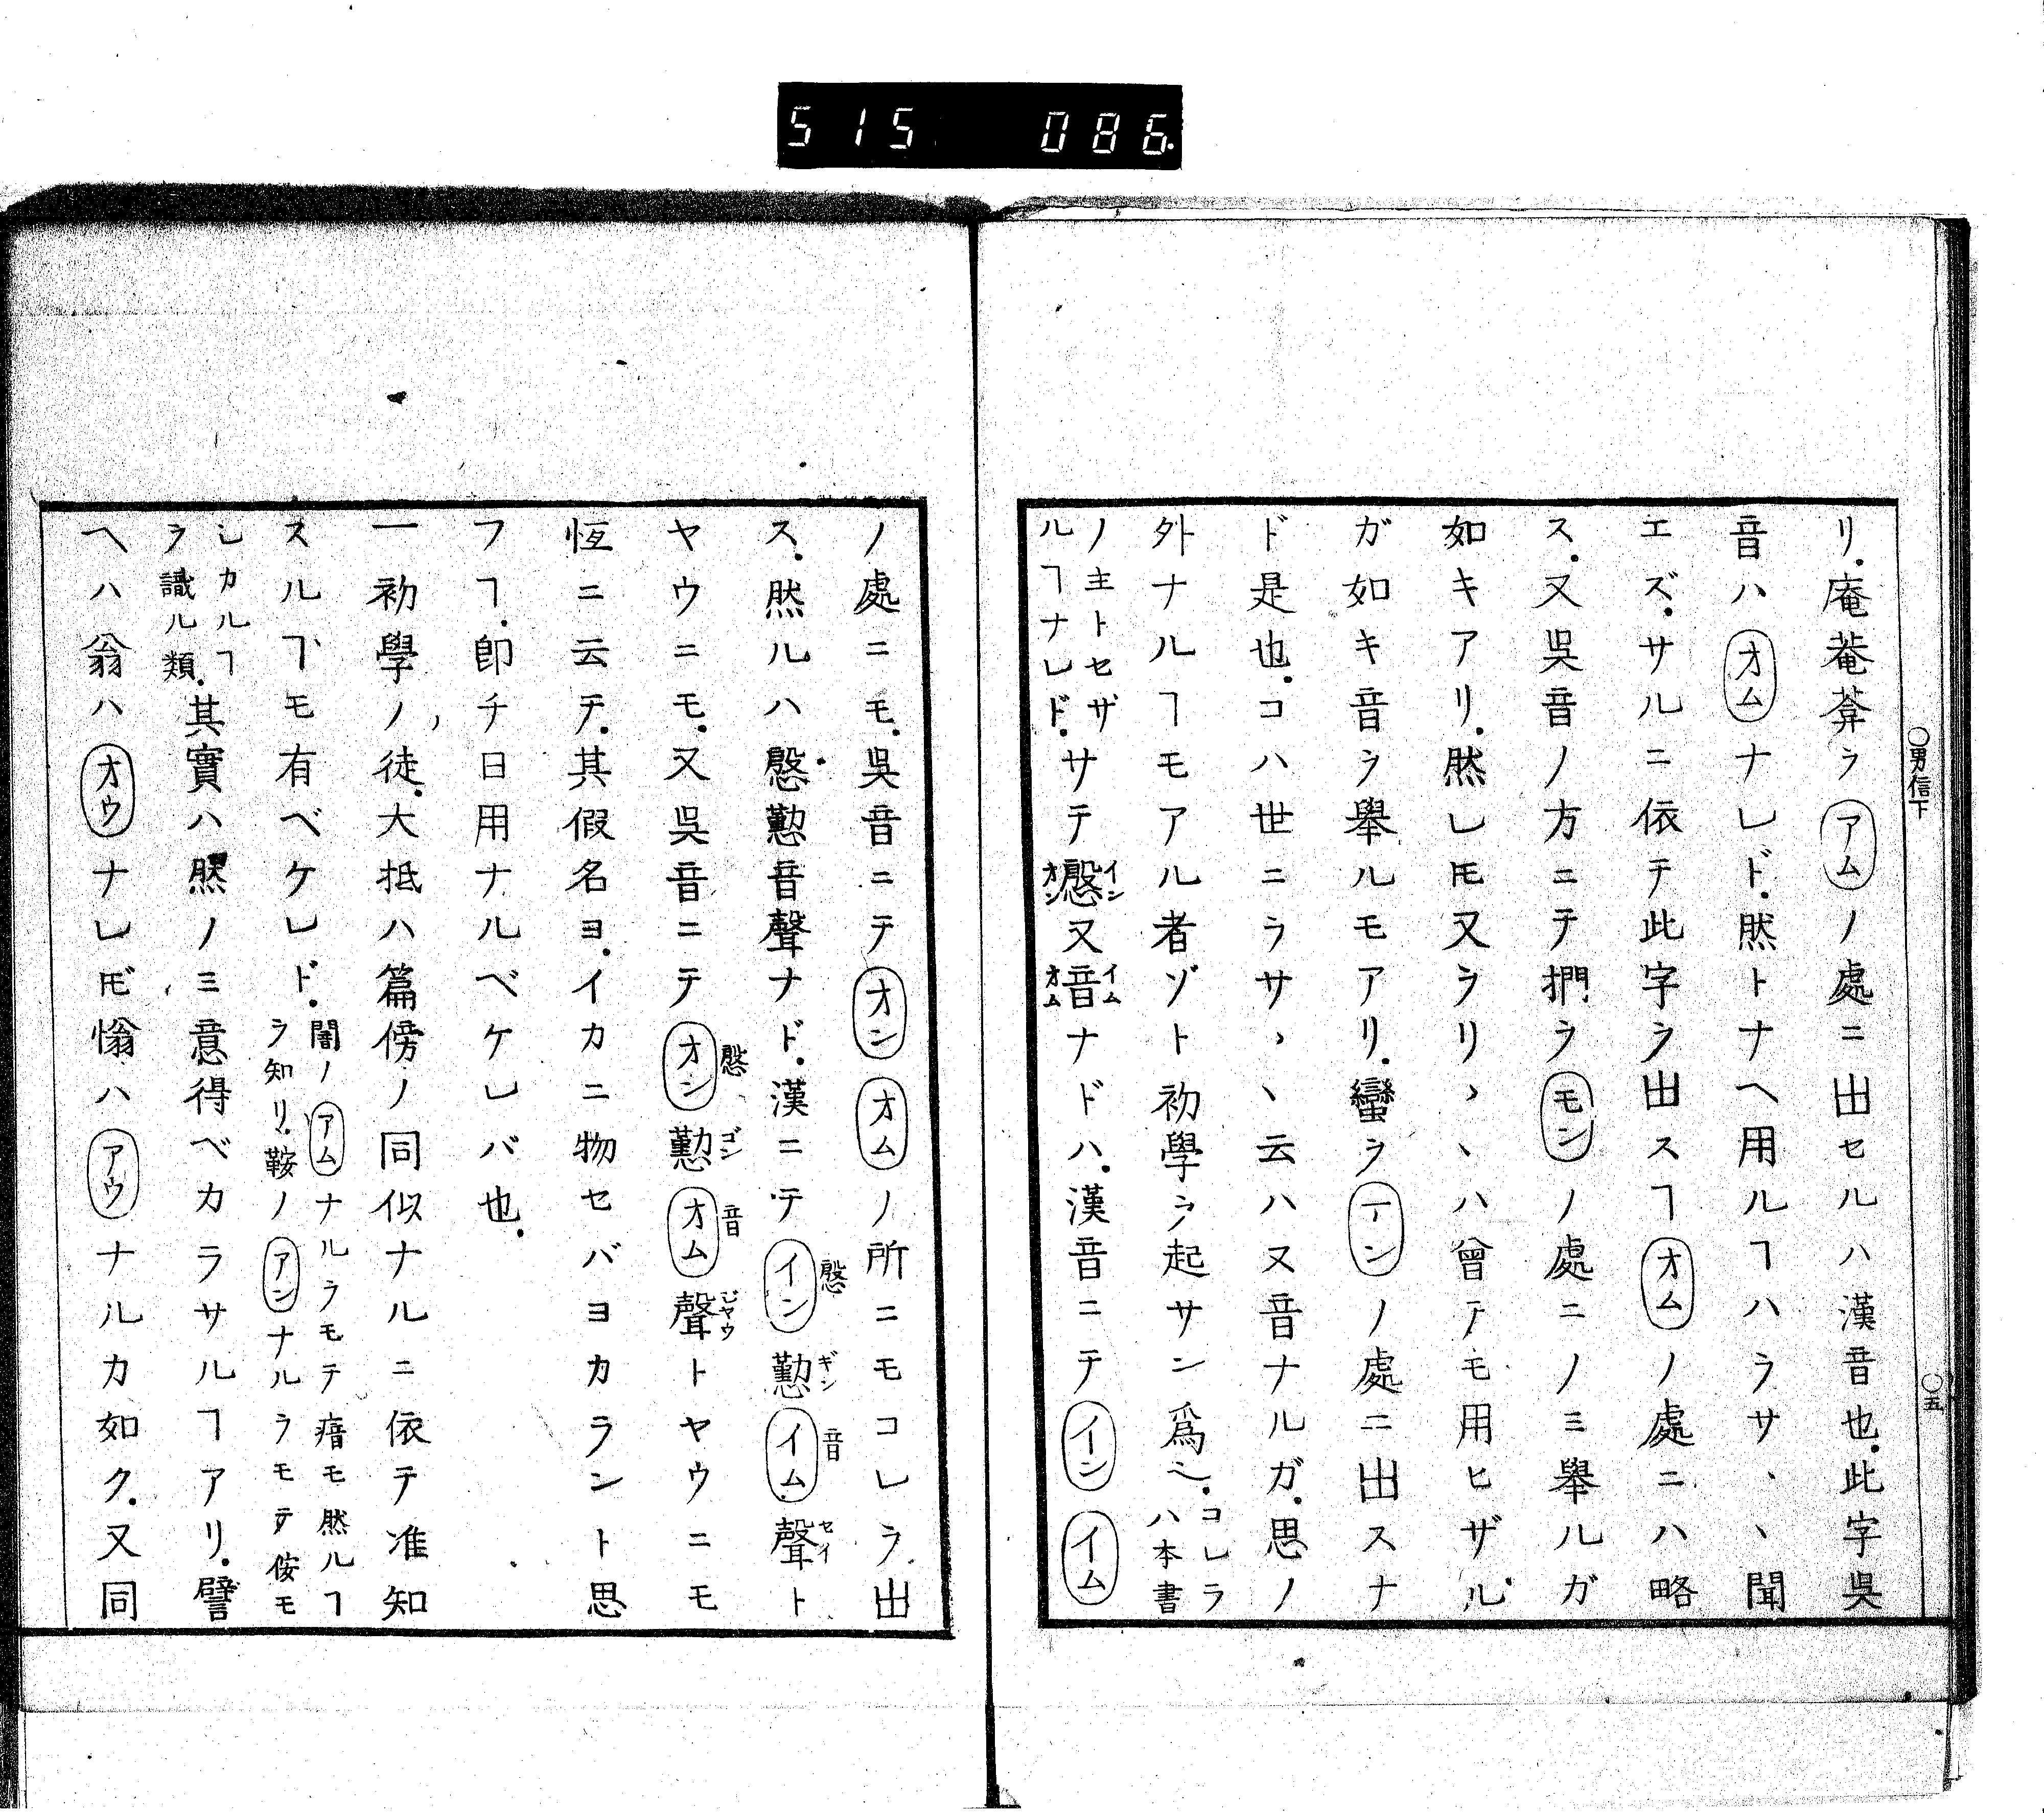 515 086
〇男信下
〇五
リ.庵菴葊ヲアムノ處ニ出セルハ漢音也.此字呉
音ハオムナレド.然トナヘ用ルヿハヲサ、、聞
エズ.サルニ依テ此字ヲ出スヿオムノ處ニハ略
ス.又呉音ノ方ニテ捫ヲモンノ處ニノミ舉ルガ
如キアリ.然レモ又ヲリ、、ハ曾テモ用ヒザル
ガ如キ音ヲ舉ルモアリ.蠻ヲノ處ニ出スナ
ド是也.コハ世ニヲサ、、云ハヌ音ナルガ.思ノ
外ナルヿモアル者ゾト初學ヲ起サン爲ヘ.コレラハ本書
ノ主トセザルヿナレド.サテ慇インオン又音イムオムナドハ.漢音ニテイン イム
ノ處ニモ.呉音ニテオン オムノ所ニモコレヲ出
ス.然ルハ慇懃音聲ナド.漢ニテ慇イン懃ギン音イム聲セイト
ヤウニモ.又呉音ニテ慇オン懃ゴン音オム聲ジヤウトヤウニモ
恆ニ云テ.其假名ヨ.イカニ物セバヨカラント思
フヿ.卽チ日用ナルベケレバ也.
一初學ノ徒.大抵ハ篇傍ノ同似ナルニ依テ准知
スルヿモ有ベケレド.闇ノアムナルヲモテ瘖モ然ルヿヲ知リ.鞍ノアンナルヲモテ侒モ
シカルヿヲ識ル類.其實ハ然ノミ意得ベカラサルヿアリ.譬
ヘハ翁ハオウナレ𪜈慃ハアウナルカ如ク.又同